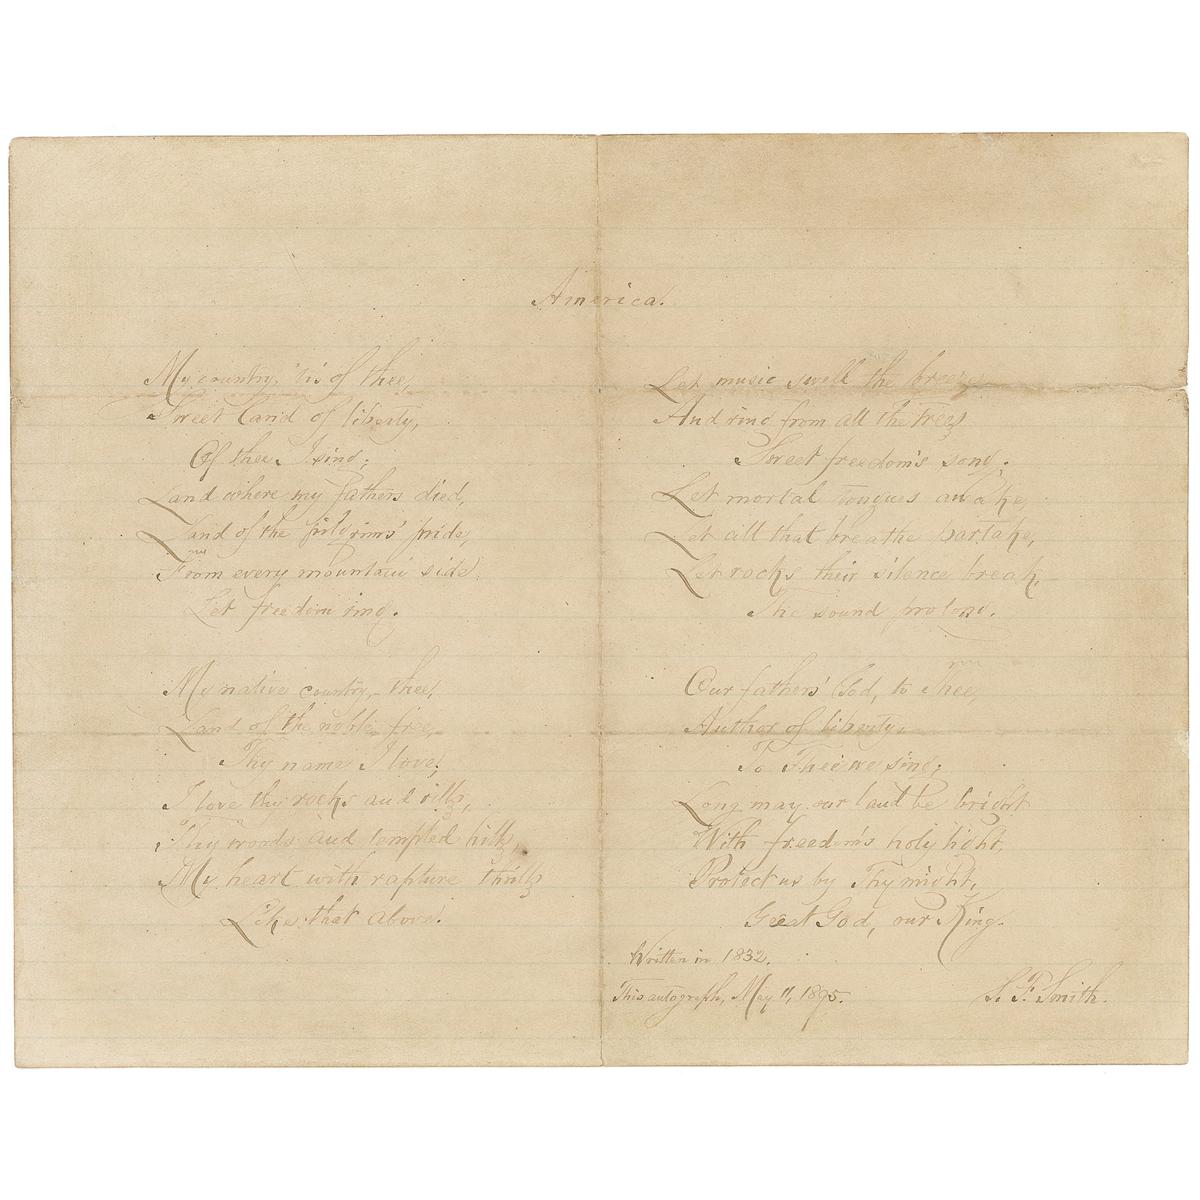 America.
My country, 'tis of thee,
Sweet land of liberty,
Of thee I sing;
Land where my fathers died,
Land of the pilgrims' pride,
From every mountain side
Let freedom ring.
My native country, thee,
Land of the noble free,
Thy name I love;
I love thy rocks and rills,
Thy woods and templed hills,
My heart with rapture thrills
Like that above.
Let music swell the breeze,
And ring from all the trees
Sweet freedom's song;
Let mortal tongues awake,
Let all that breathe partake,
Let rocks their silence break,
The sound prolong.
Our fathers' God, to Thee,
Author of liberty,
To Thee we sing;
Long may our land be bright
With freedom's holy light,
Protect us by Thy might,
Great God, our King.
Written in 1832.
This autograph, May 11, 1895.
S. F. Smith.